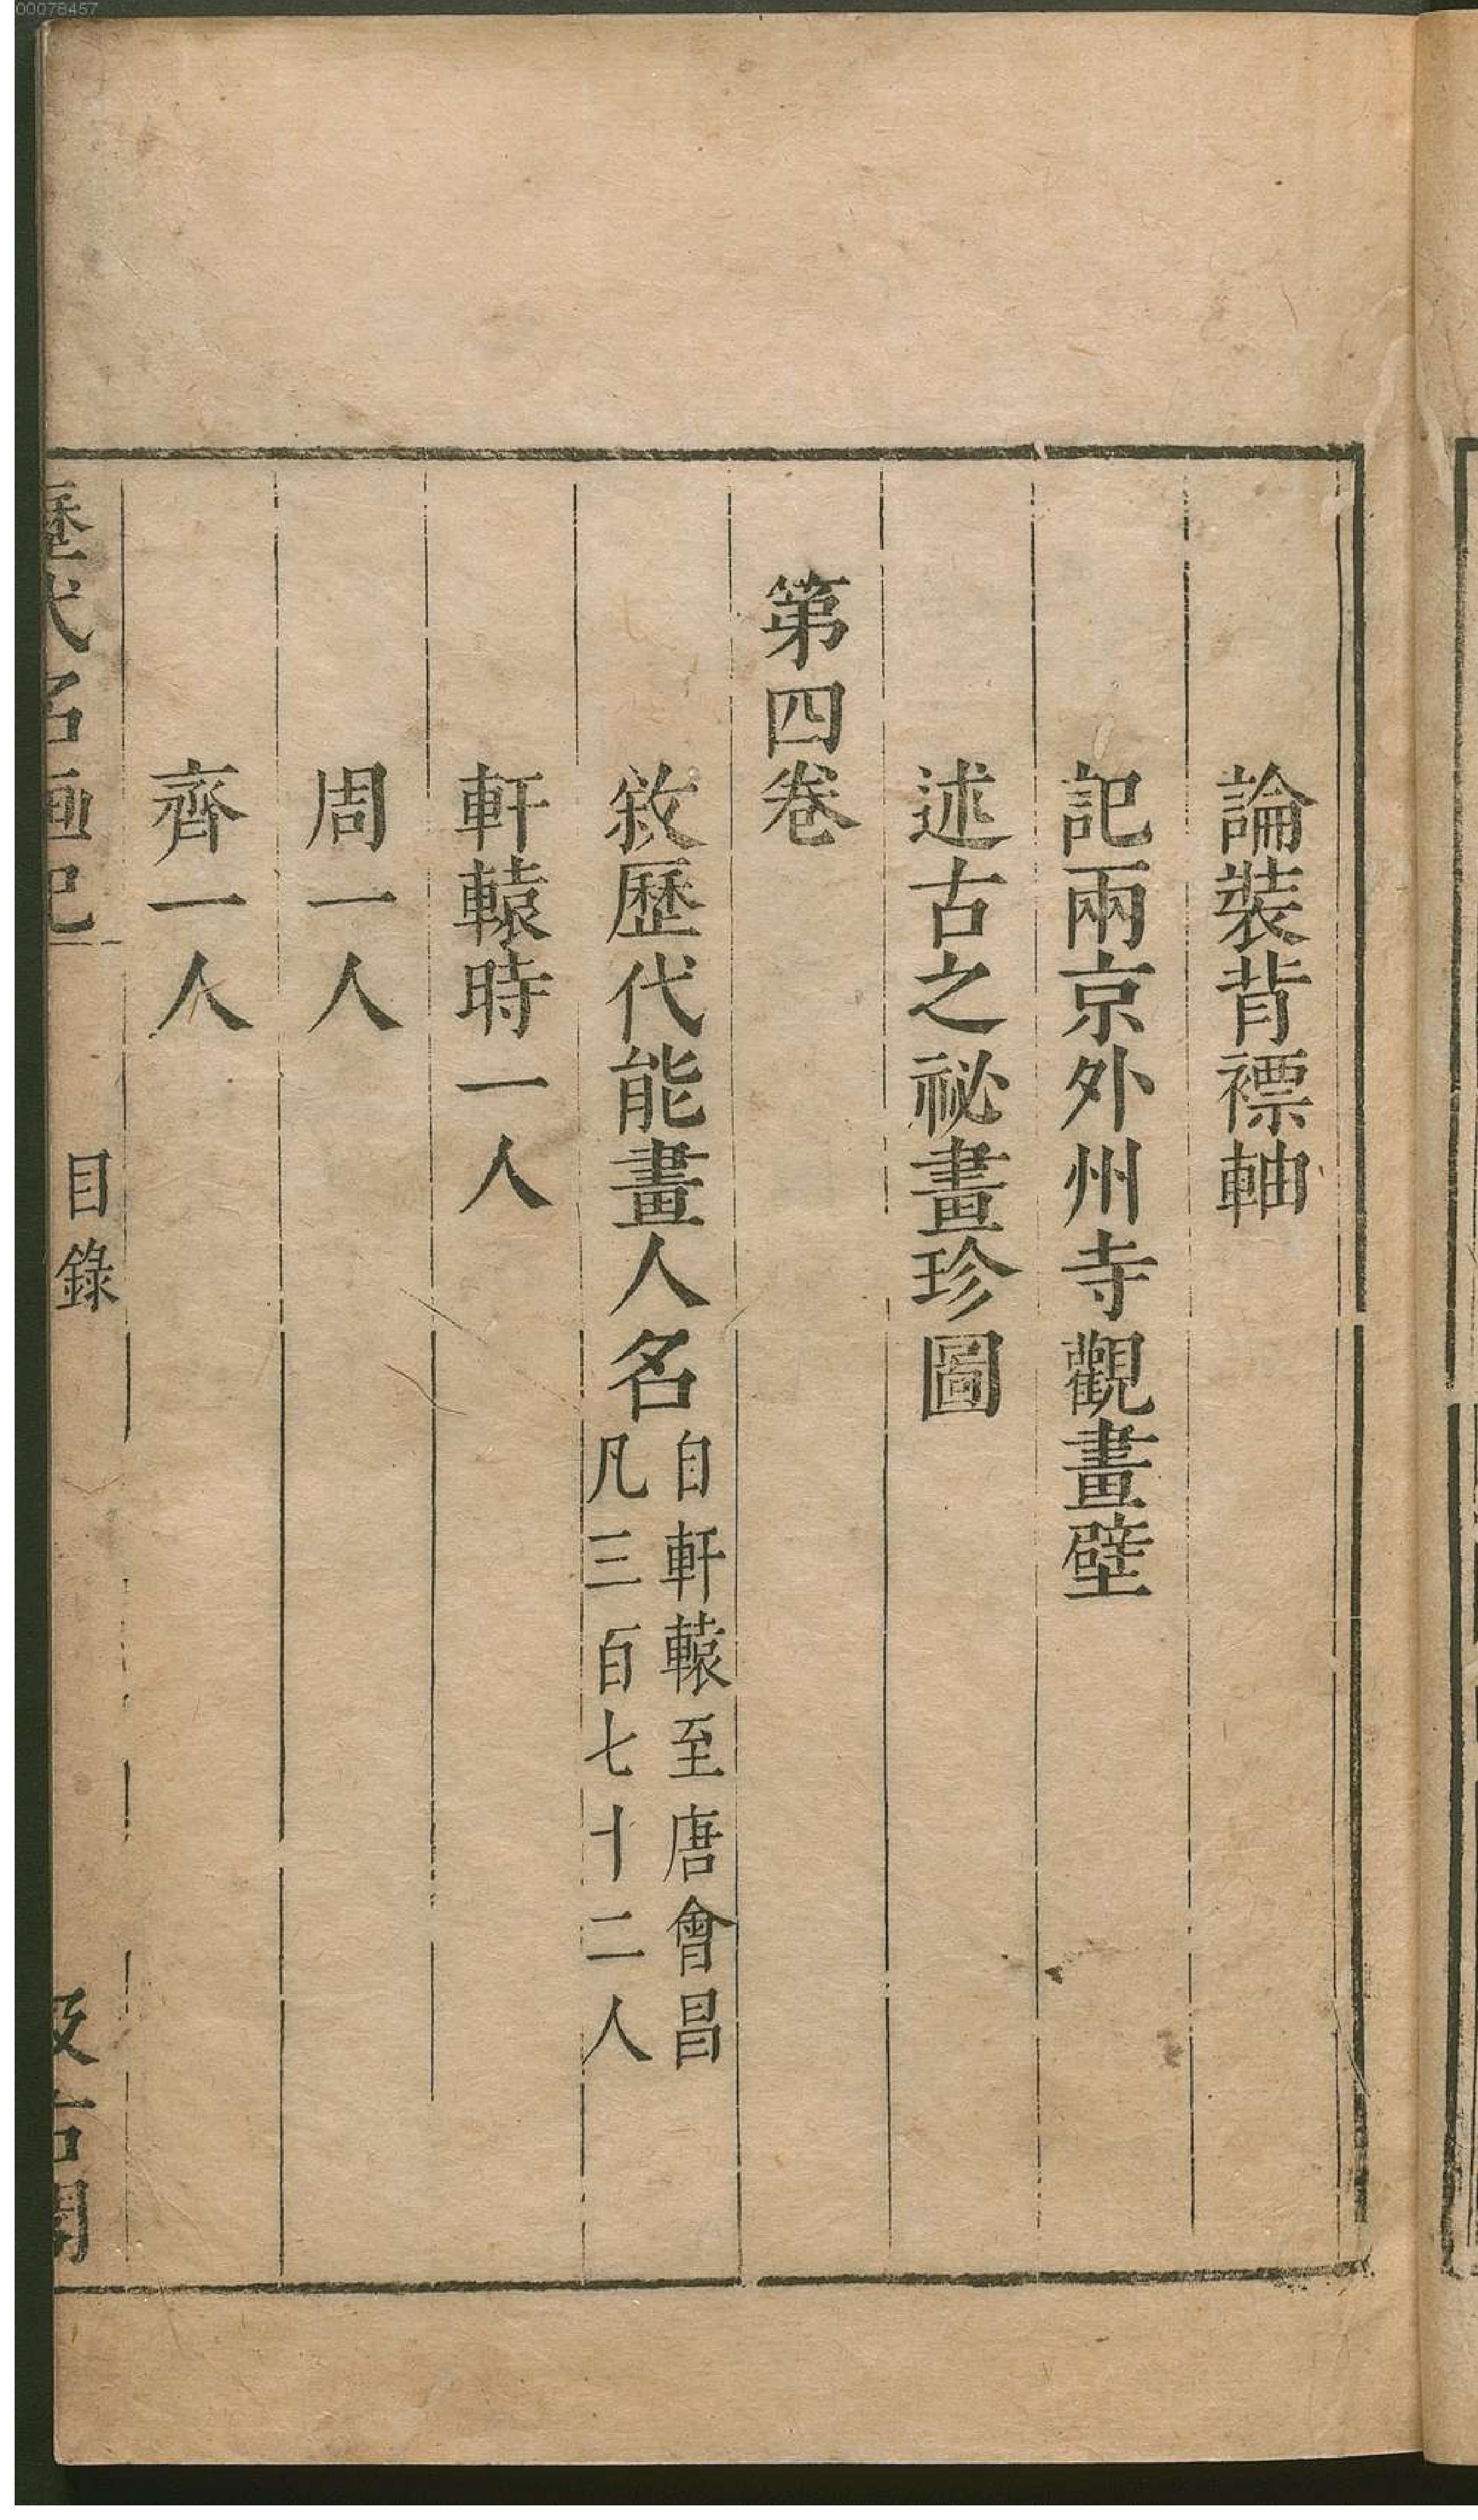 00078457
論裝背褾軸
記兩京外州寺觀畫壁
述古之祕畫珍圖
第四卷
敘歷代能畫人名
自軒轅至唐會昌
凡三百七十二人
軒轅時一人
周一人
齊一人
歷代名畫記
目錄
汲古閣